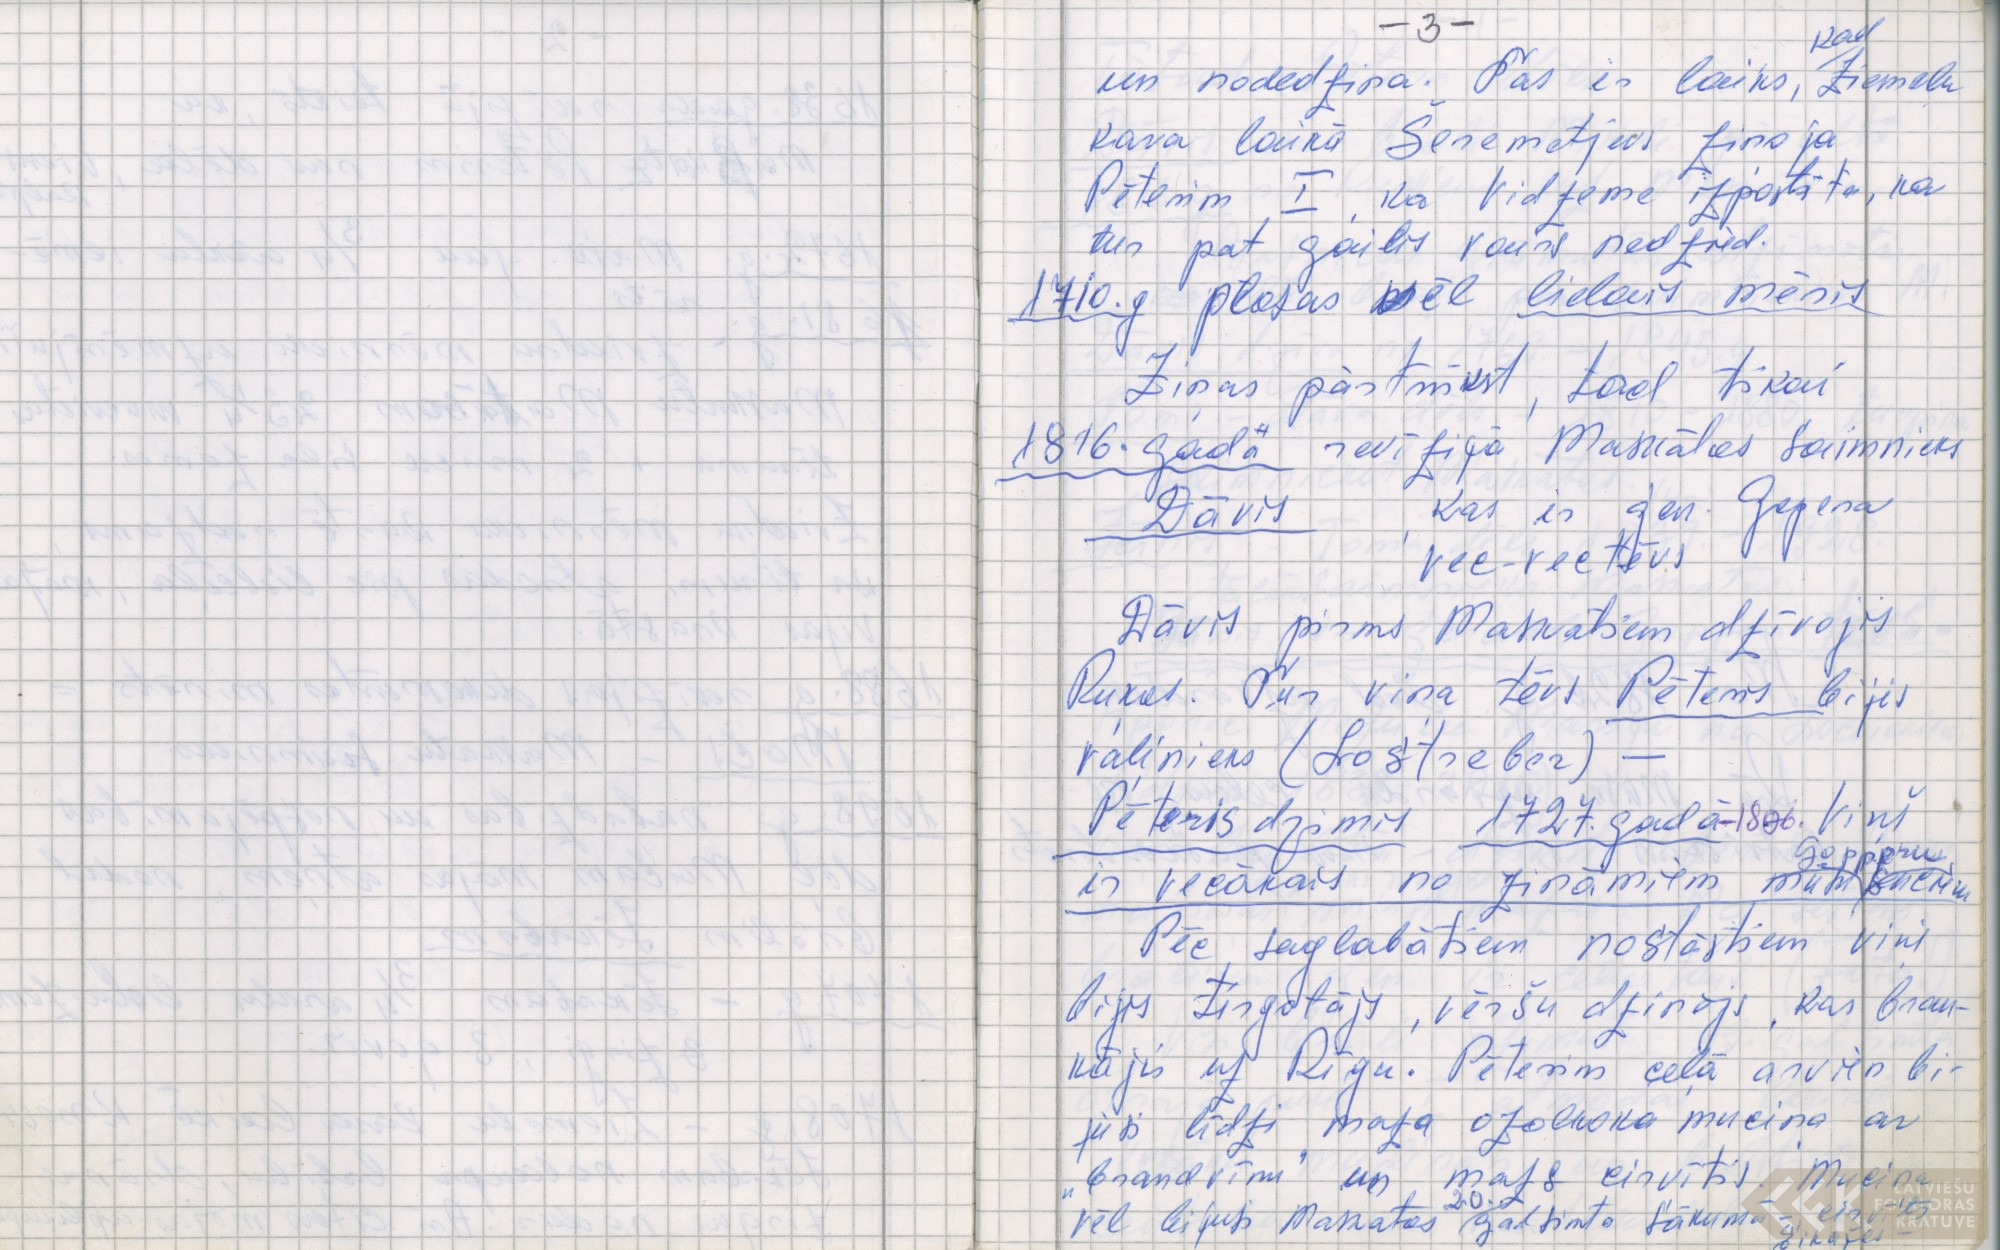 - 3 -
kad
un nodedzina. Tas ir laiks, Ziemeļu
kara laikā Šeremetjevs ziņoja
Pēterim I, ka Vidzeme izpostīta, ka
tur pat gailis vairs nedzied.
1710.g plosās vēl lielais mēris
Ziņas pārtrūkst, tad tikai
1816. gadā revīzijā Maskatos saimnieks
Dāvis, kas ir gen. Gopera
vec-vectēvs
Dāvis pirms Maskatiem dzīvojis
Rukos. Tur viņa tēvs Pēteris bijis
vaļinieks (Lostreber) —
Pēteris dzimis 1727. gadā -1806. Viņš
ir vecākais no zināmiem
Pēc saglabātiem nostāstiem viņš
bijis tirgotājs, vēršu dzinējs, kas brau-
kājis uz Rīgu. Pēterim ceļā arvien bi-
jusi līdzi maza ozolkoka muciņa ar
"brandvīnu" un mazs cirvītis. Muciņa
vēl bijusi Maskatos 20. gadsimta sākumā - cirvītis
LATVIEŠU
FOLKLORAS
KRĀTUVE